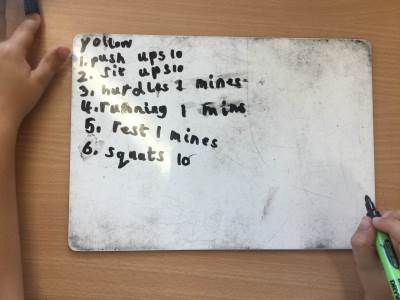 yollow
1. push ups 10
2. sit ups 10
3. hurdles 1 mines
4. running 1 mine
5. rest 1 mines
6. squats 10